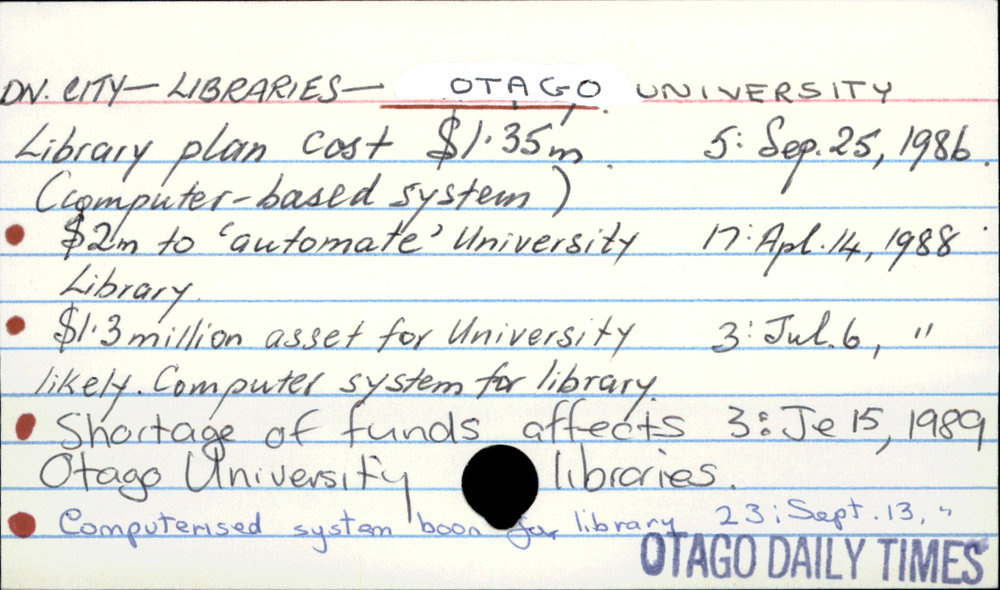 DN. CITY — LIBRARIES — OTAGO UNIVERSITY
Library plan cost $1.35m. 5: Sep. 25, 1986.
(Computer-based system)
$2m to 'automate' University 17: Apl. 14, 1988
Library.
$1.3 million asset for University 3: Jul. 6, "
likely. Computer system for library.
Shortage of funds affects 3: Je 15, 1989
Otago University libraries.
Computerised system boon for library 23: Sept. 13, "
OTAGO DAILY TIMES